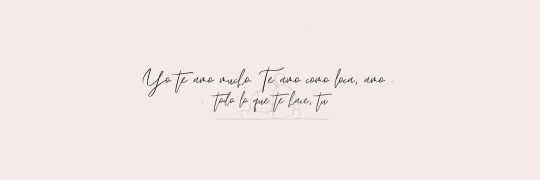 Yo te amo mucho. Te amo como loca, amo
todo lo que te hace, tu